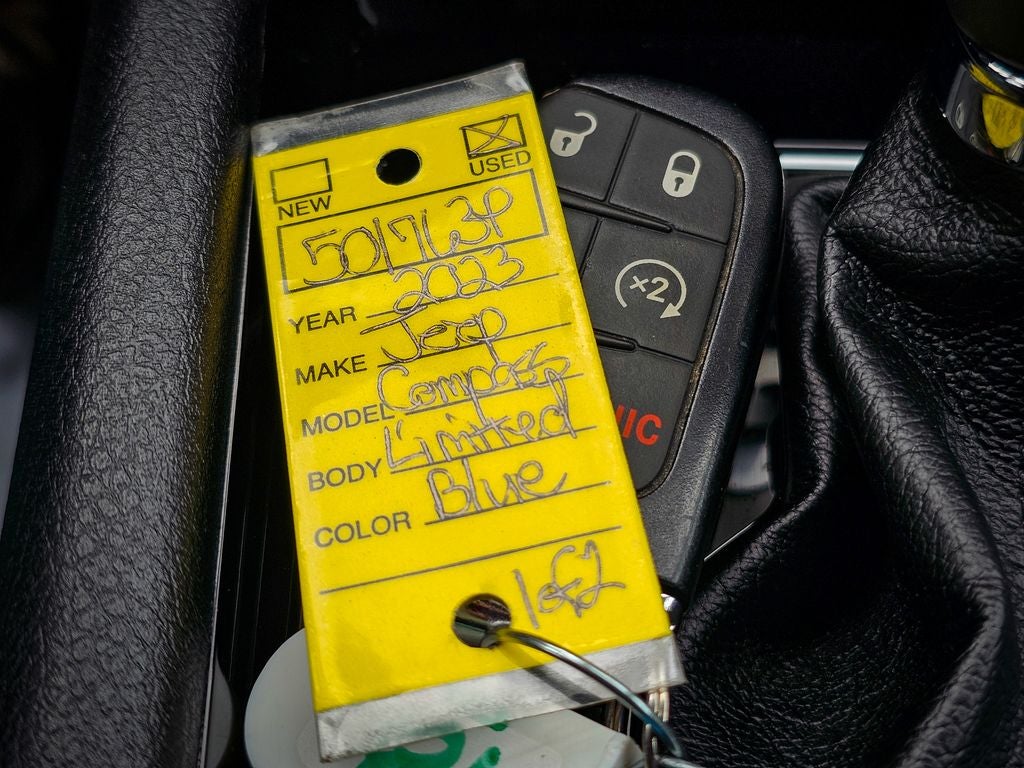 NEW
USED
501763P
YEAR 2023
MAKE Jeep
MODEL Compass
BODY Limited
COLOR Blue
1 of 2
x2
NIC